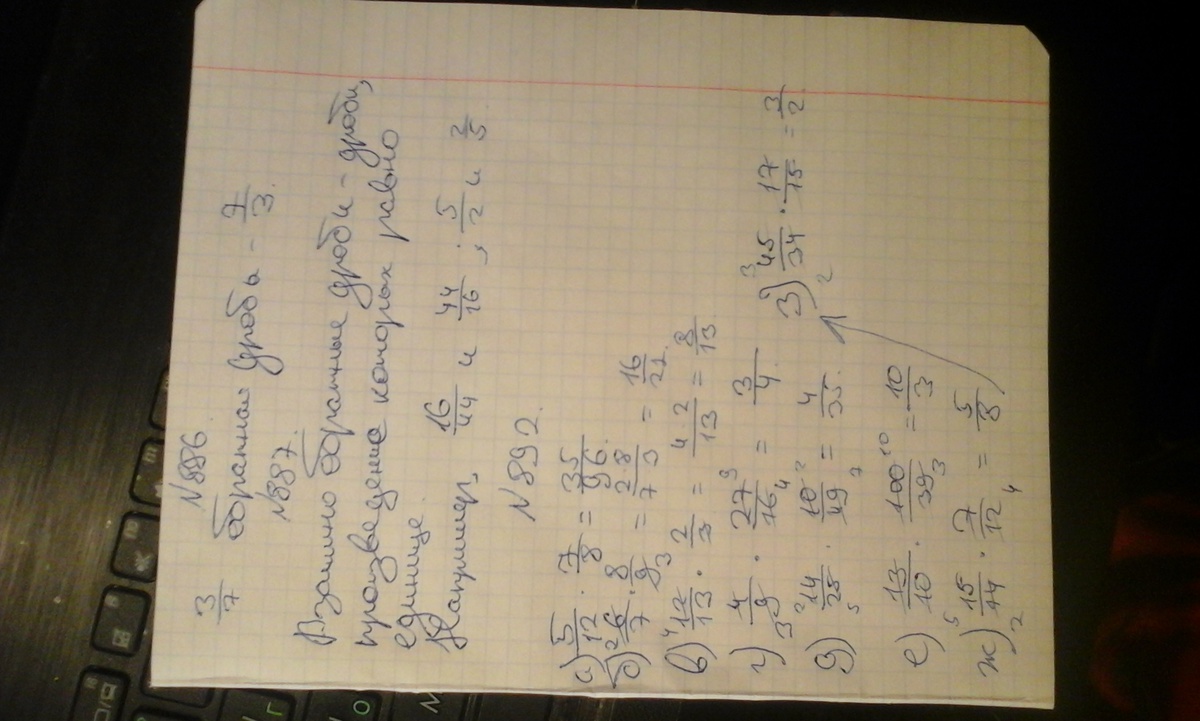 №886.
3/7 обратная дробь - 7/3.
№887.
Взаимно обратные дроби - дроби,
произведение которых равно
единице.
Например, 16/44 и 44/16, ; 5/2 и 2/5.
№892.
а) 5/12 · 7/8 = 35/96.
б) 2 6/7 · 8/9 3 = 2·8/7·3 = 16/21.
в) 4 12/13 · 2/3 = 4·2/13 = 8/13
г) 4/9 3 · 27 9/16 4 = 3/4.
д) 2 14/25 5 · 10 2/49 7 = 4/35.
е) 13/10 · 100 10/39 3 = 10/3
ж) 5 15/14 2 · 7/12 4 = 5/8
з) 3 45/34 2 · 17/15 = 3/2.
Г
О
М